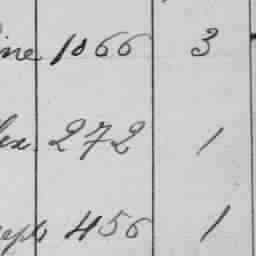 ine 1066 3
lex 272 1
eph 456 1